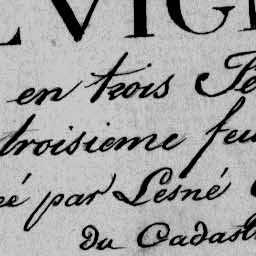 EVIGN
en trois Fe
troisieme feu
cé par Lesné
du Cadast